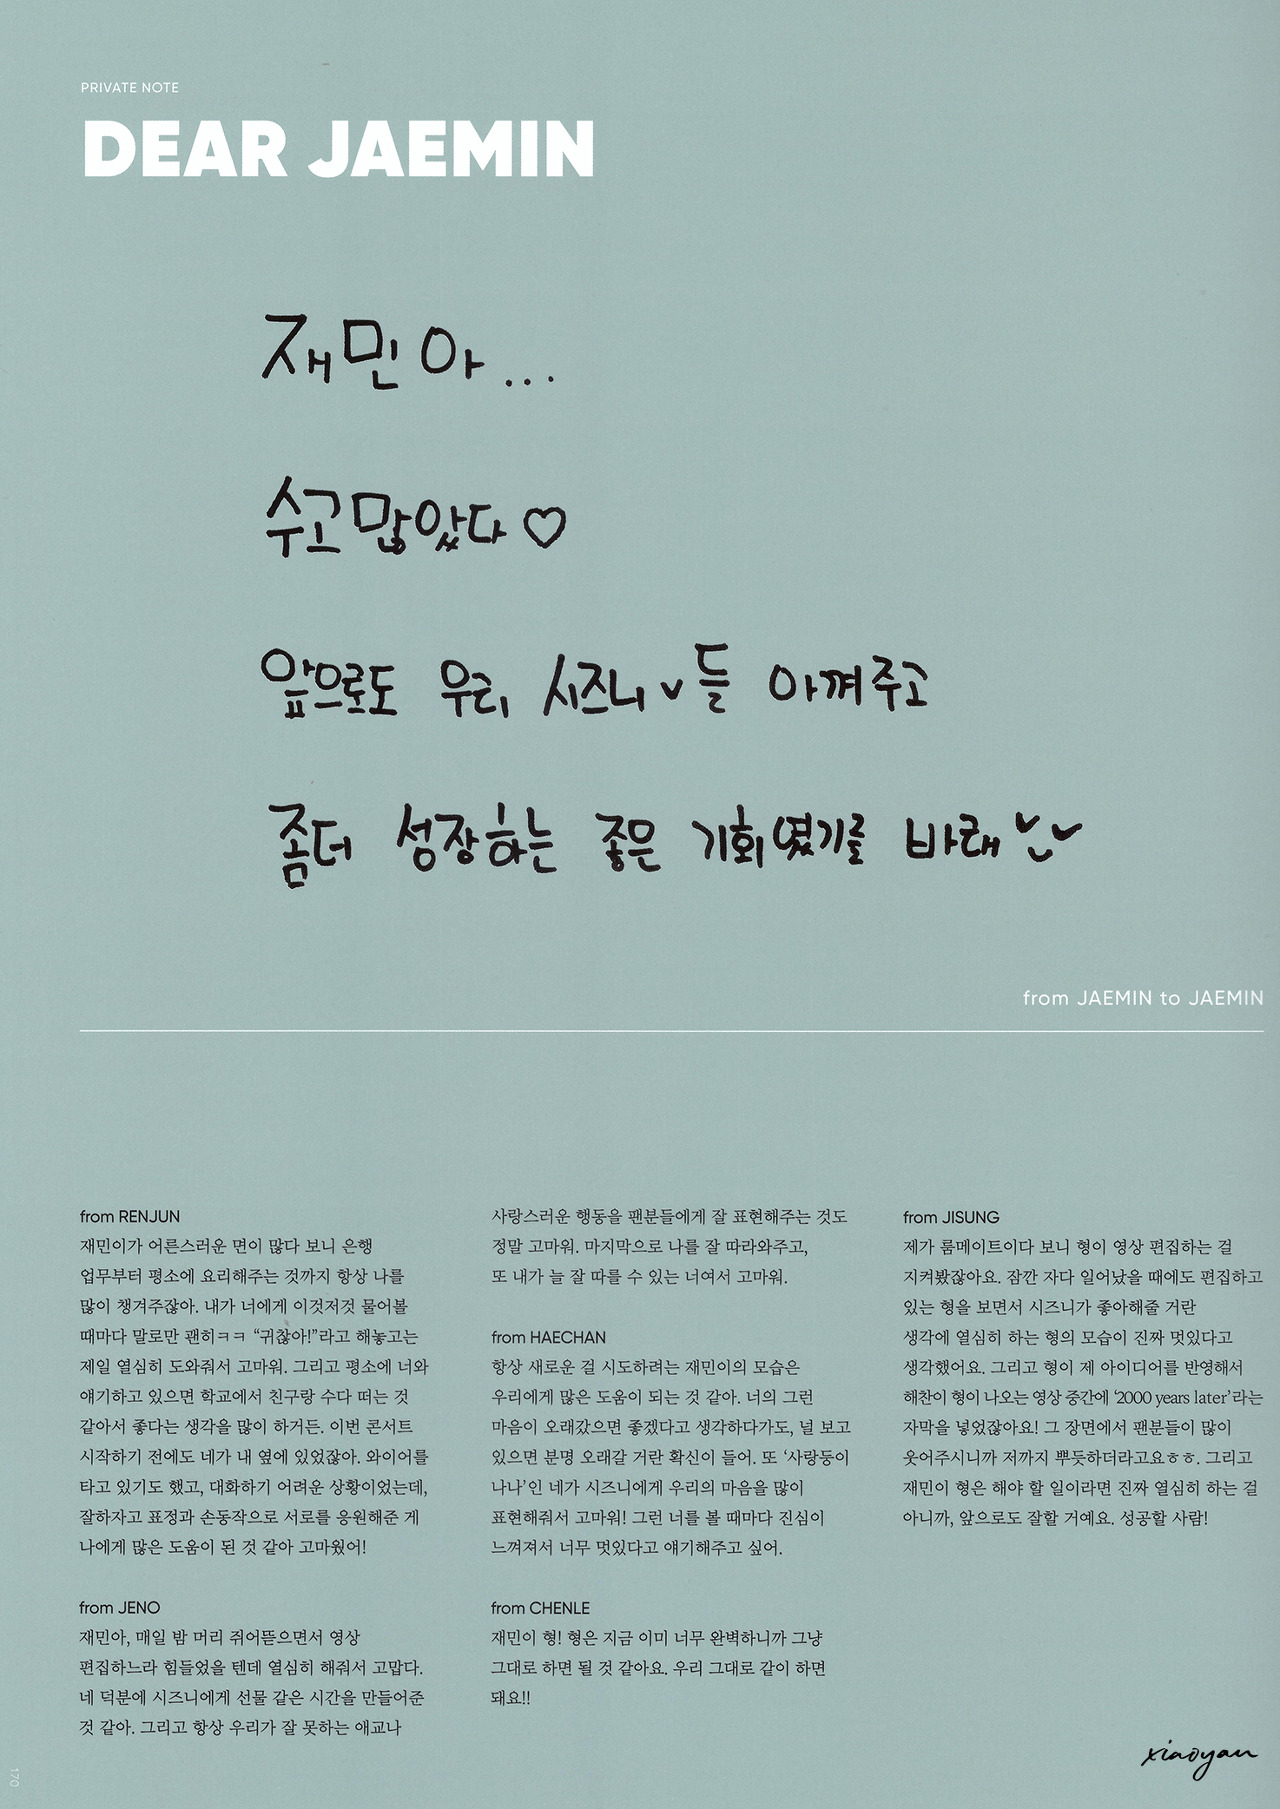 PRIVATE NOTE
DEAR JAEMIN
재민아...
수고많았다♡
앞으로도 우리 시즈니들 아껴주고
좀더 성장하는 좋은 기회였기를 바래
from JAEMIN to JAEMIN
from RENJUN
재민이가 어른스러운 면이 많다 보니 은행
업무부터 평소에 요리해주는 것까지 항상 나를
많이 챙겨주잖아. 내가 너에게 이것저것 물어볼
때마다 말로만 괜히ㅋㅋ “귀찮아!”라고 해놓고는
제일 열심히 도와줘서 고마워. 그리고 평소에 너와
얘기하고 있으면 학교에서 친구랑 수다 떠는 것
같아서 좋다는 생각을 많이 하거든. 이번 콘서트
시작하기 전에도 네가 내 옆에 있었잖아. 와이어를
타고 있기도 했고, 대화하기 어려운 상황이었는데,
잘하자고 표정과 손동작으로 서로를 응원해준 게
나에게 많은 도움이 된 것 같아 고마웠어!
from JENO
재민아, 매일 밤 머리 쥐어뜯으면서 영상
편집하느라 힘들었을 텐데 열심히 해줘서 고맙다.
네 덕분에 시즈니에게 선물 같은 시간을 만들어준
것 같아. 그리고 항상 우리가 잘 못하는 애교나
사랑스러운 행동을 팬분들에게 잘 표현해주는 것도
정말 고마워. 마지막으로 나를 잘 따라와주고,
또 내가 늘 잘 따를 수 있는 너여서 고마워.
from HAECHAN
항상 새로운 걸 시도하려는 재민이의 모습은
우리에게 많은 도움이 되는 것 같아. 너의 그런
마음이 오래갔으면 좋겠다고 생각하다가도, 널 보고
있으면 분명 오래갈 거란 확신이 들어. 또 ‘사랑둥이
나나’인 네가 시즈니에게 우리의 마음을 많이
표현해줘서 고마워! 그런 너를 볼 때마다 진심이
느껴져서 너무 멋있다고 얘기해주고 싶어.
from CHENLE
재민이 형! 형은 지금 이미 너무 완벽하니까 그냥
그대로 하면 될 것 같아요. 우리 그대로 같이 하면
돼요!!
from JISUNG
제가 룸메이트이다 보니 형이 영상 편집하는 걸
지켜봤잖아요. 잠깐 자다 일어났을 때에도 편집하고
있는 형을 보면서 시즈니가 좋아해줄 거란
생각에 열심히 하는 형의 모습이 진짜 멋있다고
생각했어요. 그리고 형이 제 아이디어를 반영해서
해찬이 형이 나오는 영상 중간에 ‘2000 years later’라는
자막을 넣었잖아요! 그 장면에서 팬분들이 많이
웃어주시니까 저까지 뿌듯하더라고요ㅎㅎ. 그리고
재민이 형은 해야 할 일이라면 진짜 열심히 하는 걸
아니까, 앞으로도 잘할 거예요. 성공할 사람!
xiaoyan
170